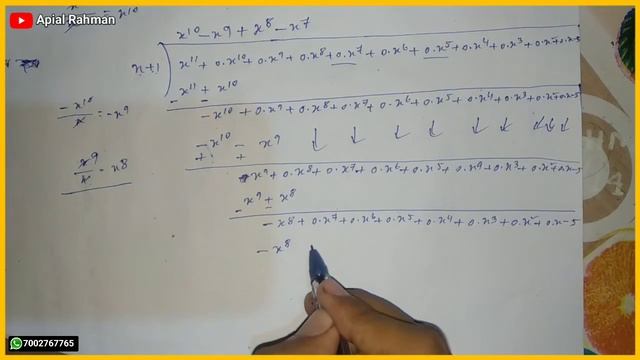 Apial Rahman
x¹⁰
x¹⁰ - x⁹ + x⁸ - x⁷
x+1 ) x¹¹ + 0.x¹⁰ + 0.x⁹ + 0.x⁸ + 0.x⁷ + 0.x⁶ + 0.x⁵ + 0.x⁴ + 0.x³ + 0.x² + 0.x-5
x¹¹ + x¹⁰
- -
-x¹⁰/x = -x⁹
-x¹⁰ + 0.x⁹ + 0.x⁸ + 0.x⁷ + 0.x⁶ + 0.x⁵ + 0.x⁴ + 0.x³ + 0.x² + 0.x-5
-x¹⁰ - x⁹
+ +
x⁹/x = x⁸
x⁹ + 0.x⁸ + 0.x⁷ + 0.x⁶ + 0.x⁵ + 0.x⁴ + 0.x³ + 0.x² + 0.x-5
x⁹ + x⁸
- -
-x⁸ + 0.x⁷ + 0.x⁶ + 0.x⁵ + 0.x⁴ + 0.x³ + 0.x² + 0.x-5
-x⁸
7002767765